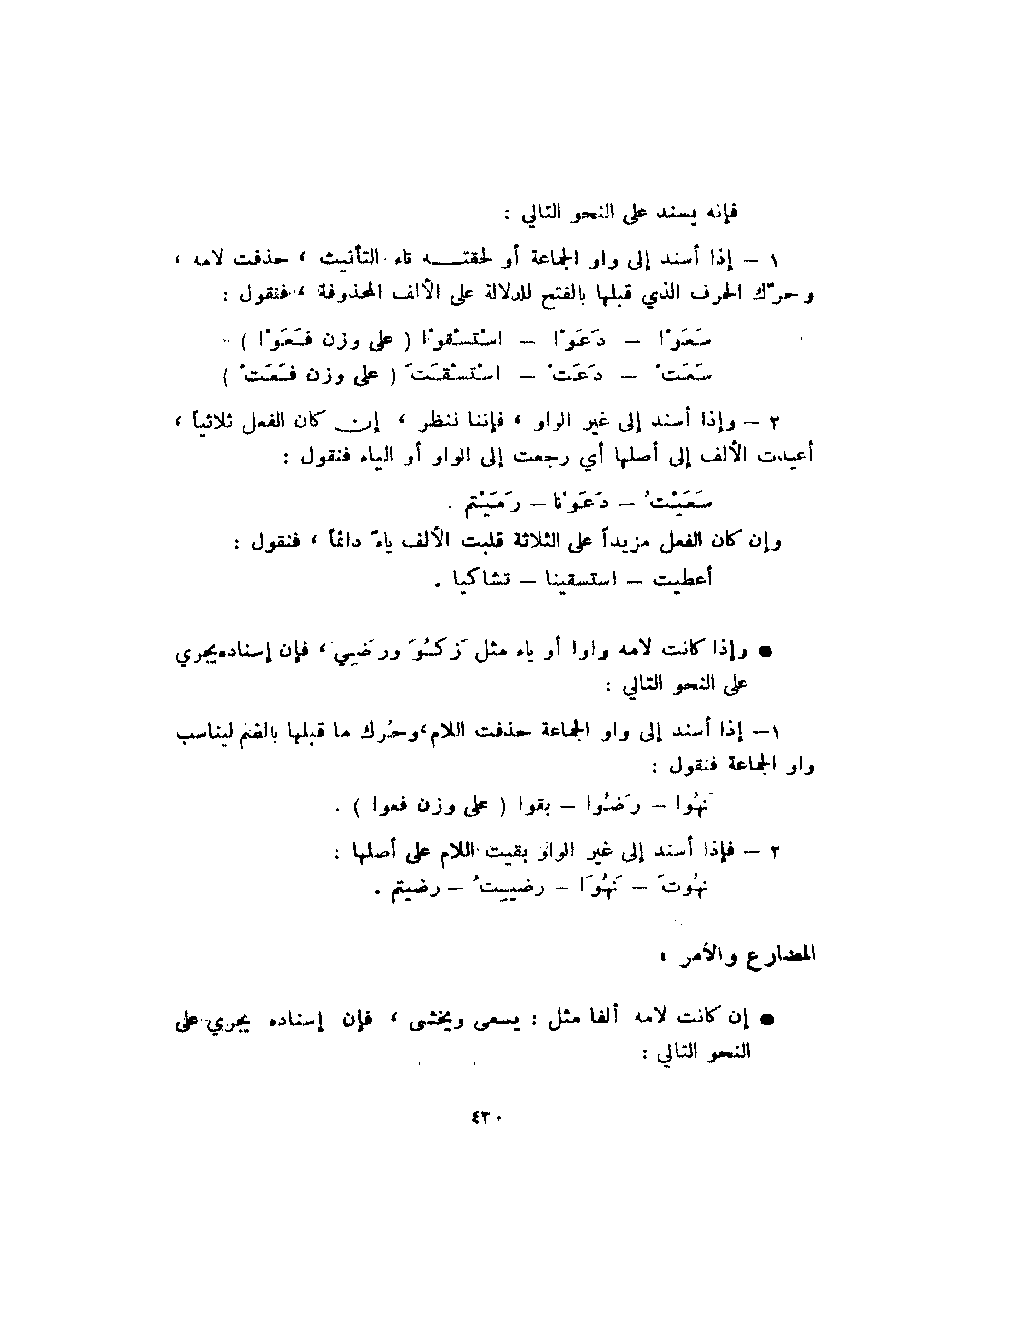 فإنه يسند على النحو التالي :
١ – إذا أسند إلى واو الجماعة أو لحقته تاء التأنيث ، حذفت لامه ،
وحرّك الحرف الذي قبلها بالفتح للدلالة على الألف المحذوفة ، فنقول :
سَعَوْا – دَعَوْا – اسْتَسْقَوْا ( على وزن فَعَوْا )
سَعَتْ – دَعَتْ – اسْتَسْقَتْ ( على وزن فَعَتْ )
٢ – وإذا أسند إلى غير الواو ، فإننا ننظر ، إن كان الفعل ثلاثياً ،
أعيدت الألف إلى أصلها أي رجعت إلى الواو أو الياء فنقول :
سَعَيْتُ – دَعَوْنا – رَمَيْتم .
وإن كان الفعل مزيداً على الثلاثة قلبت الألف ياءً دائماً ، فنقول :
أعطيت – استسقينا – تشاكيا .
● وإذا كانت لامه واوا أو ياء مثل زَكُوَ ورَضِيَ ، فإن إسناده يجري
على النحو التالي :
١– إذا أسند إلى واو الجماعة حذفت اللام،وحُرك ما قبلها بالضم ليناسب
واو الجماعة فنقول :
نَهُوا – رَضُوا – بقوا ( على وزن فعوا ) .
٢ – فإذا أسند إلى غير الواو بقيت اللام على أصلها :
نَهُوتَ – نَهُوَا – رضيتُ – رضيتم .
المضارع والأمر :
● إن كانت لامه ألفا مثل : يسعى ويخشى ، فإن إسناده يجري على
النحو التالي :
٤٣٠